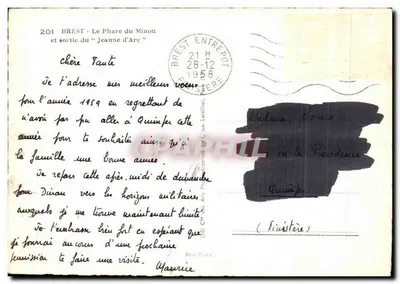 201 BREST - Le Phare du Minou
et sortie du "Jeanne d'Arc"
BREST ENTREPOT
21 H
28-12
1958
FINISTERE
Chère Tante
Je t'adresse mes meilleurs voeux
pour l'année 1959 en regrettant de
n'avoir par pu aller à Quimper cette
année pour te souhaiter ainsi qu'à
la famille une bonne année.
Je repars cette après-midi de dimanche
pour Dinan vers les horizons militaires
auxquels je me trouve maintenant limité
Je t'embrasse bien fort en espérant que
je pourrai au cours d'une prochaine
permission te faire une visite.
Maurice
Quimper
(Finistère)